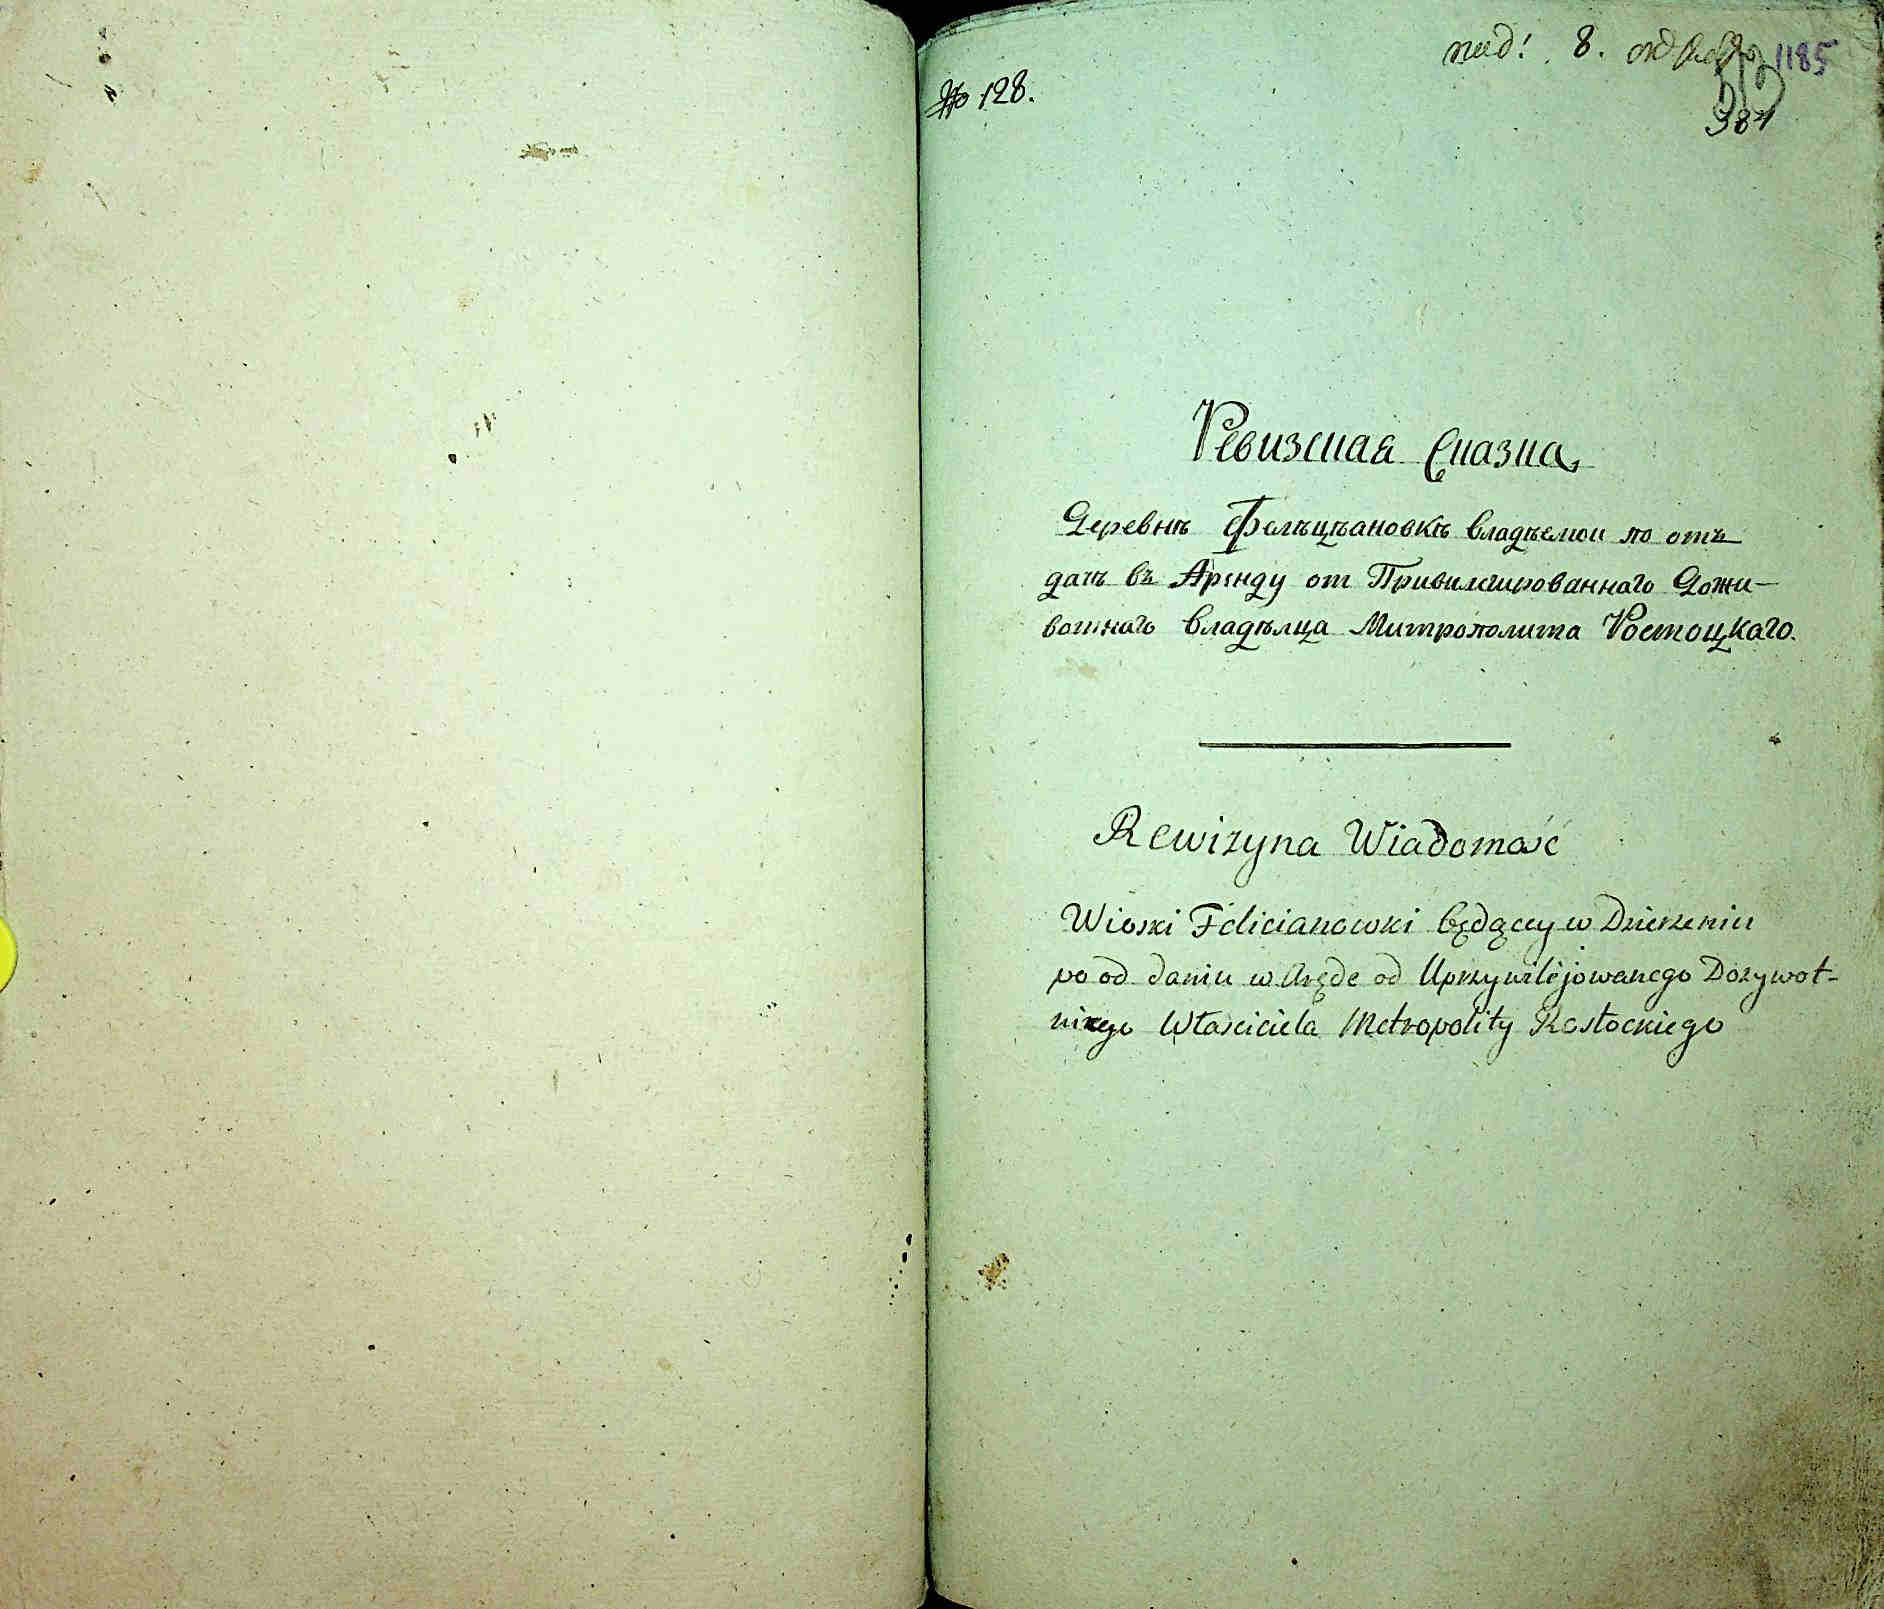 № 128.
под: 8. октября 1185
381
Ревизская Сказка
Деревнѣ Фелъцъановкѣ владѣемои по отъ
дачѣ въ Аренду от Привилегированнаго Дожи-
вотнаго владѣлца Митрополита Ростоцкаго.
Rewizyna Wiadomość
Wioski Felicianowki będącey w Dzierzeniu
po od daniu w Arędę od Uprzywilejowanego Dozywot-
niego Własciciela Metropolity Rostockiego